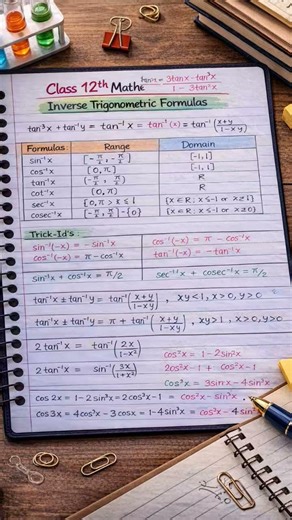 Class 12th Mathe
tan³x = 3tanx-tan³x / 1-3tan²x
Inverse Trigonometric Formulas
tan³x + tan⁻¹y = tan⁻¹ x = tan⁻¹ (x) = tan⁻¹ (x+y / 1-xy)
Formulas Range Domain
sin⁻¹x [-π/2, -π/2] [-1, 1]
cos⁻¹x [0, π] [-1, 1]
tan⁻¹x (-π/2, π/2) R
cot⁻¹x (0, π) R
sec⁻¹x {0, π > k ≤ 1 {x ∈ R; x ≤ -1 or x ≥ 1}
cosec⁻¹x [-π/2, π/2] - {0} {x ∈ R; x ≤ -1 or x ≥ 0}
Trick-Id's:
sin⁻¹(-x) = -sin⁻¹x cos⁻¹(-x) = π - cos⁻¹x
cos⁻¹(-x) = π - cos⁻¹x tan⁻¹(-x) = -tan⁻¹x
sin⁻¹x + cos⁻¹x = π/2 sec⁻¹x + cosec⁻¹x = π/2
tan⁻¹x ± tan⁻¹y = tan⁻¹(x+y / 1-xy), xy<1, x>0, y>0
tan⁻¹x ± tan⁻¹y = π + tan⁻¹(x+y / 1-xy), xy>1, x>0, y>0
2 tan⁻¹x = tan⁻¹(2x / 1-x²) cos²x = 1-2sin²x
2cos²x-1 + cos²x-1
2 tan⁻¹x = sin⁻¹(3x / 1+x²)
cos³x = 3sinx - 4sin³x
cos 2x = 1-2sin²x = 2cos²x-1 = cos²x-sin²x
cos 3x = 4cos³x-3cosx = 1-4sin³x = cos³x-4sin³x